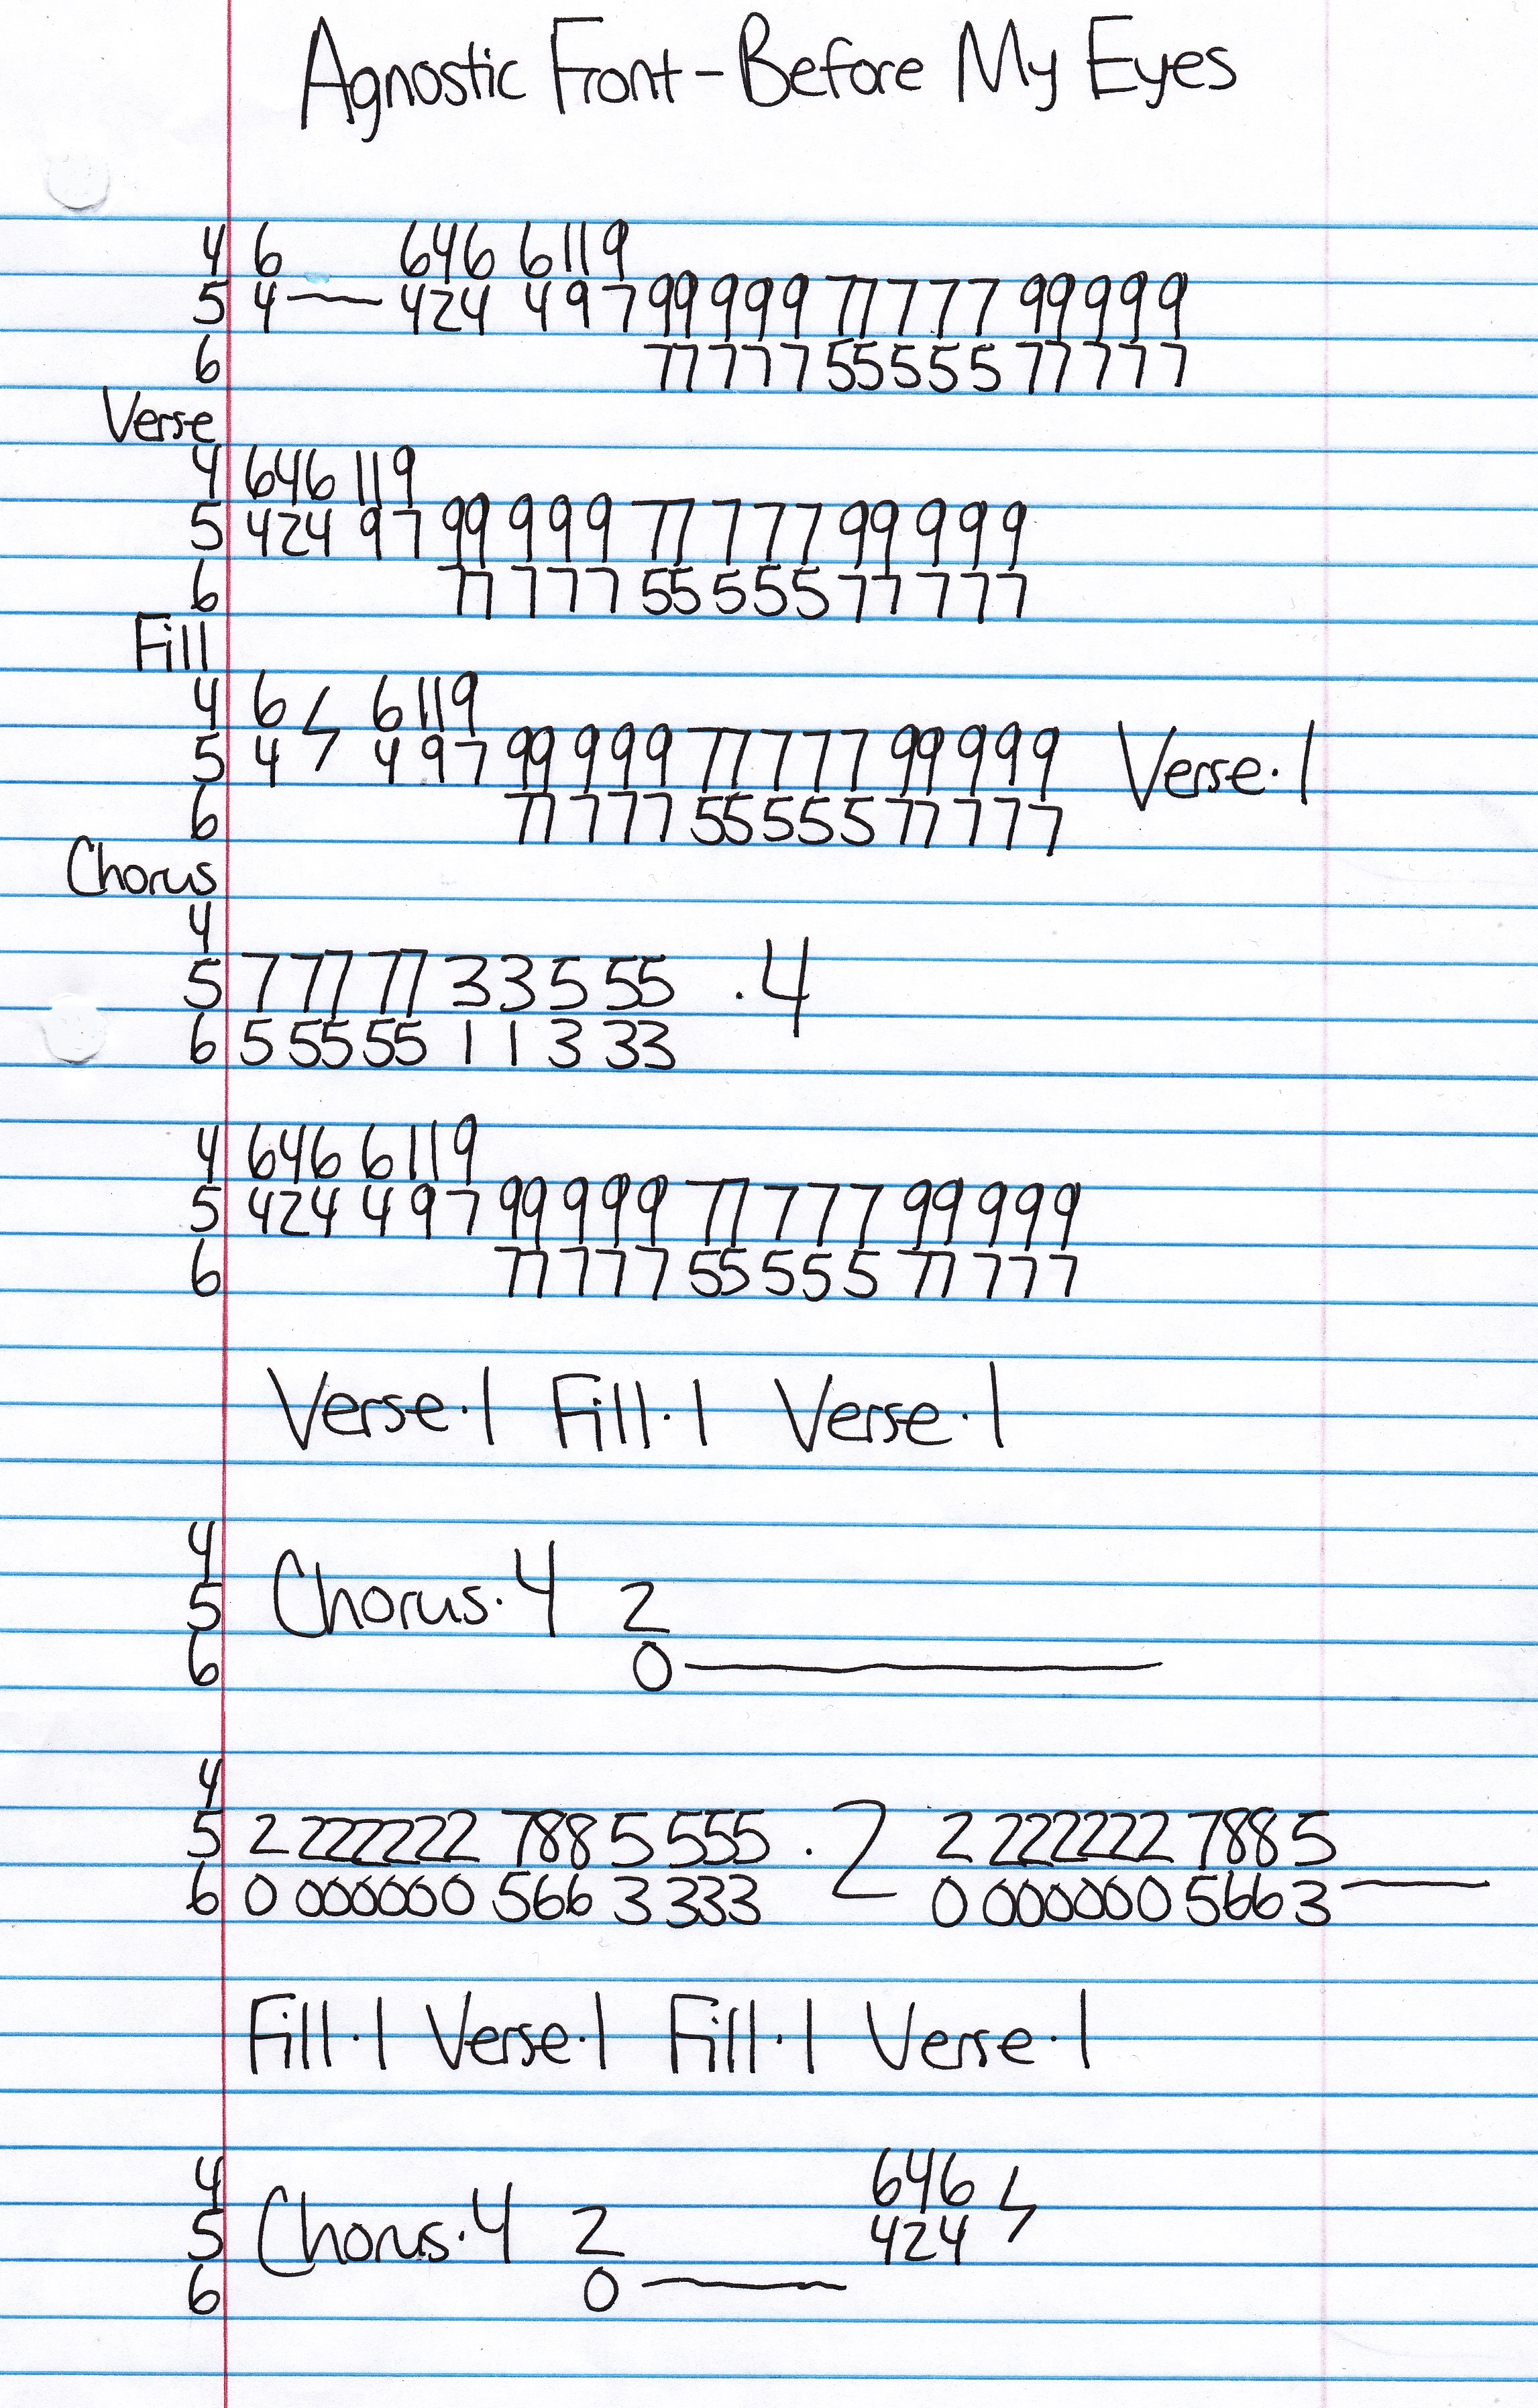 Agnostic Front - Before My Eyes
4 6 646 6 11 9
5 4 — 424 4 9 7 99 9 9 9 77 7 7 7 99 9 9 9
6 77 7 7 7 55 5 5 5 77 7 7 7
Verse
4 646 11 9
5 424 9 7 99 9 9 9 77 7 7 7 99 9 9 9
6 77 7 7 7 55 5 5 5 77 7 7 7
Fill
4 6 6 11 9
5 4 4 9 7 99 9 9 9 77 7 7 7 99 9 9 9 Verse·1
6 77 7 7 7 55 5 5 5 77 7 7 7
Chorus
4
5 7 77 77 3 3 5 55 ·4
6 5 55 55 1 1 3 33
4 646 6 11 9
5 424 4 9 7 99 9 9 9 77 7 7 7 99 9 9 9
6 77 7 7 7 55 5 5 5 77 7 7 7
Verse·1 Fill·1 Verse·1
4
5 Chorus·4 2
6 0 —
4
5 2 222222 788 5 555 ·2 2 222222 788 5
6 0 000000 566 3 333 0 000000 566 3 —
Fill·1 Verse·1 Fill·1 Verse·1
4 646
5 Chorus·4 2 424
6 0 —